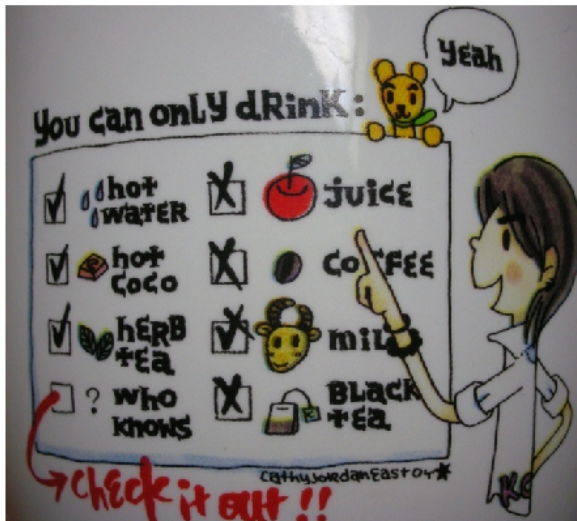 Yeah
You can only drink:
hot
water
hot
coco
herb
tea
? who
knows
juice
coffee
milk
Black
tea
check it out!!